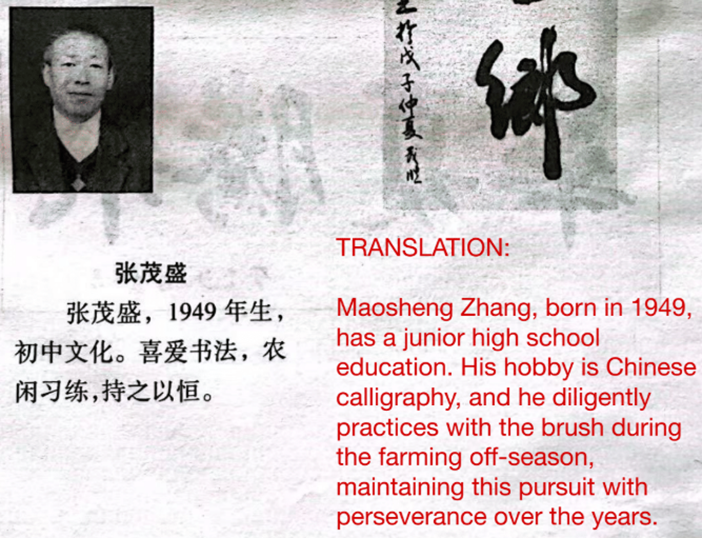 於戊子仲夏
鄉
张茂盛
张茂盛，1949 年生，
初中文化。喜爱书法，农
闲习练,持之以恒。
TRANSLATION:
Maosheng Zhang, born in 1949,
has a junior high school
education. His hobby is Chinese
calligraphy, and he diligently
practices with the brush during
the farming off-season,
maintaining this pursuit with
perseverance over the years.